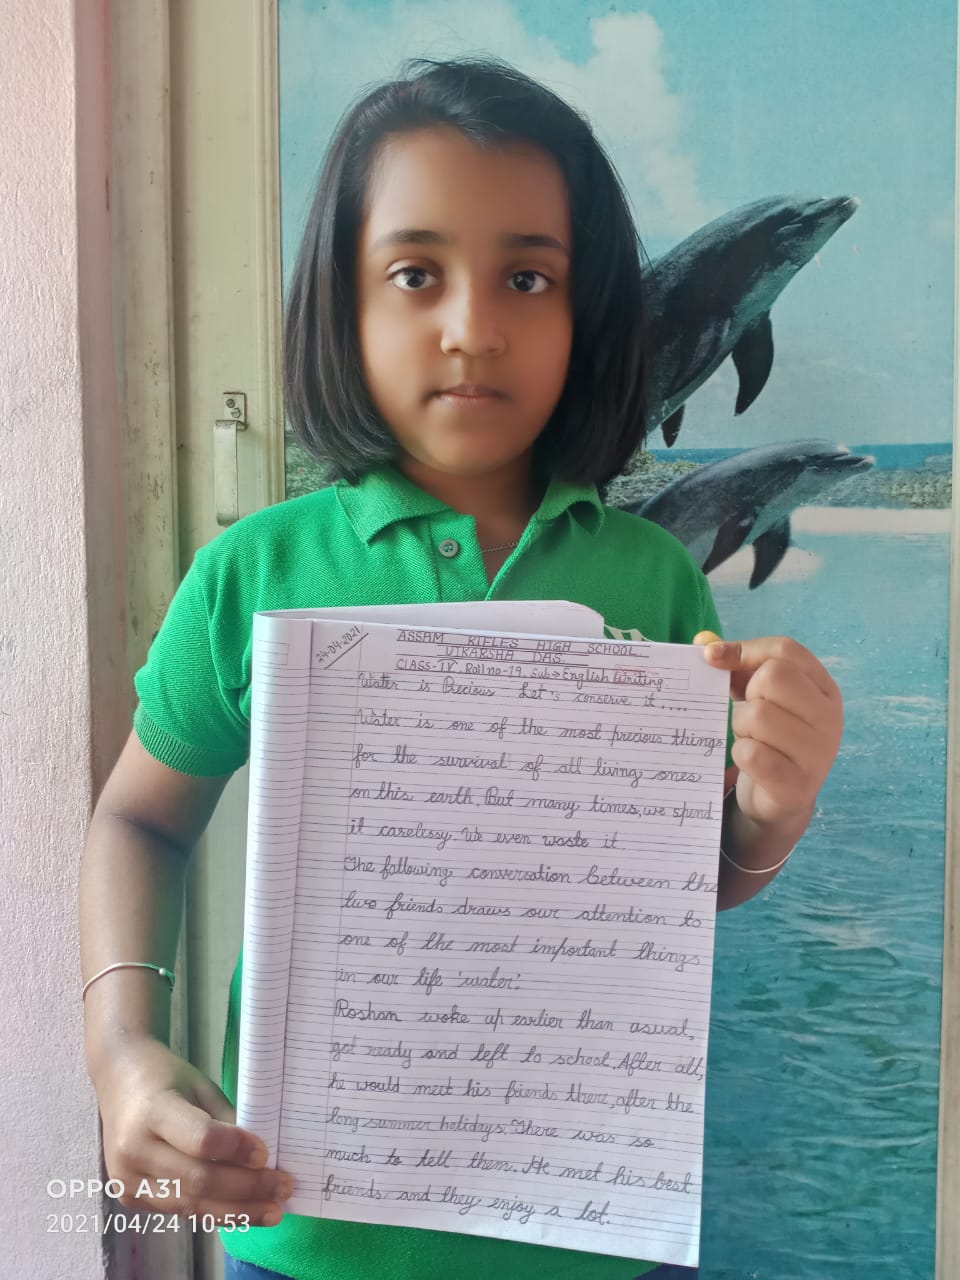 24-04-2021
ASSAM RIFLES HIGH SCHOOL.
UTKARSHA DAS.
CLASS-IV. Roll no-19. Sub→English Writing
Water is Precious Let's conserve it....
Water is one of the most precious things
for the survival of all living ones
on this earth. But many times, we spend
it carelessy. We even waste it.
The following conversation between the
two friends draws our attention to
one of the most important things
in our life 'water'.
Roshan woke up earlier than usual,
got ready and left to school. After all,
he would meet his friends there, after the
long summer holidays. There was so
much to tell them. He met his best
friends and they enjoy a lot.
OPPO A31
2021/04/24 10:53